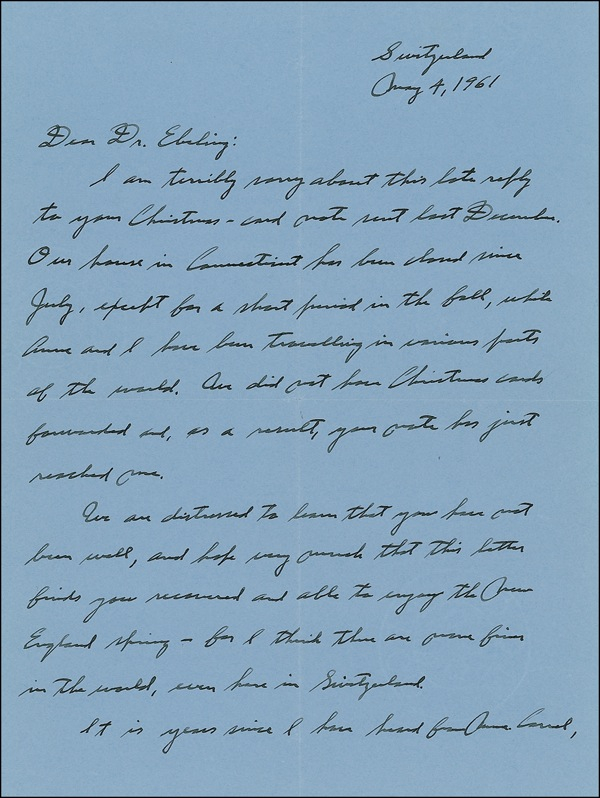 Switzerland
May 4, 1961
Dear Dr. Ebeling:
I am terribly sorry about this late reply
to your Christmas-card note sent last December.
Our house in Connecticut has been closed since
July, except for a short period in the fall, while
Anne and I have been travelling in various parts
of the world. We did not have Christmas cards
forwarded and, as a result, your note has just
reached me.
We are distressed to learn that you have not
been well, and hope very much that this letter
finds you recovered and able to enjoy the New
England spring — for I think there are none finer
in the world, even here in Switzerland.
It is years since I have heard from Mme. Carrel,